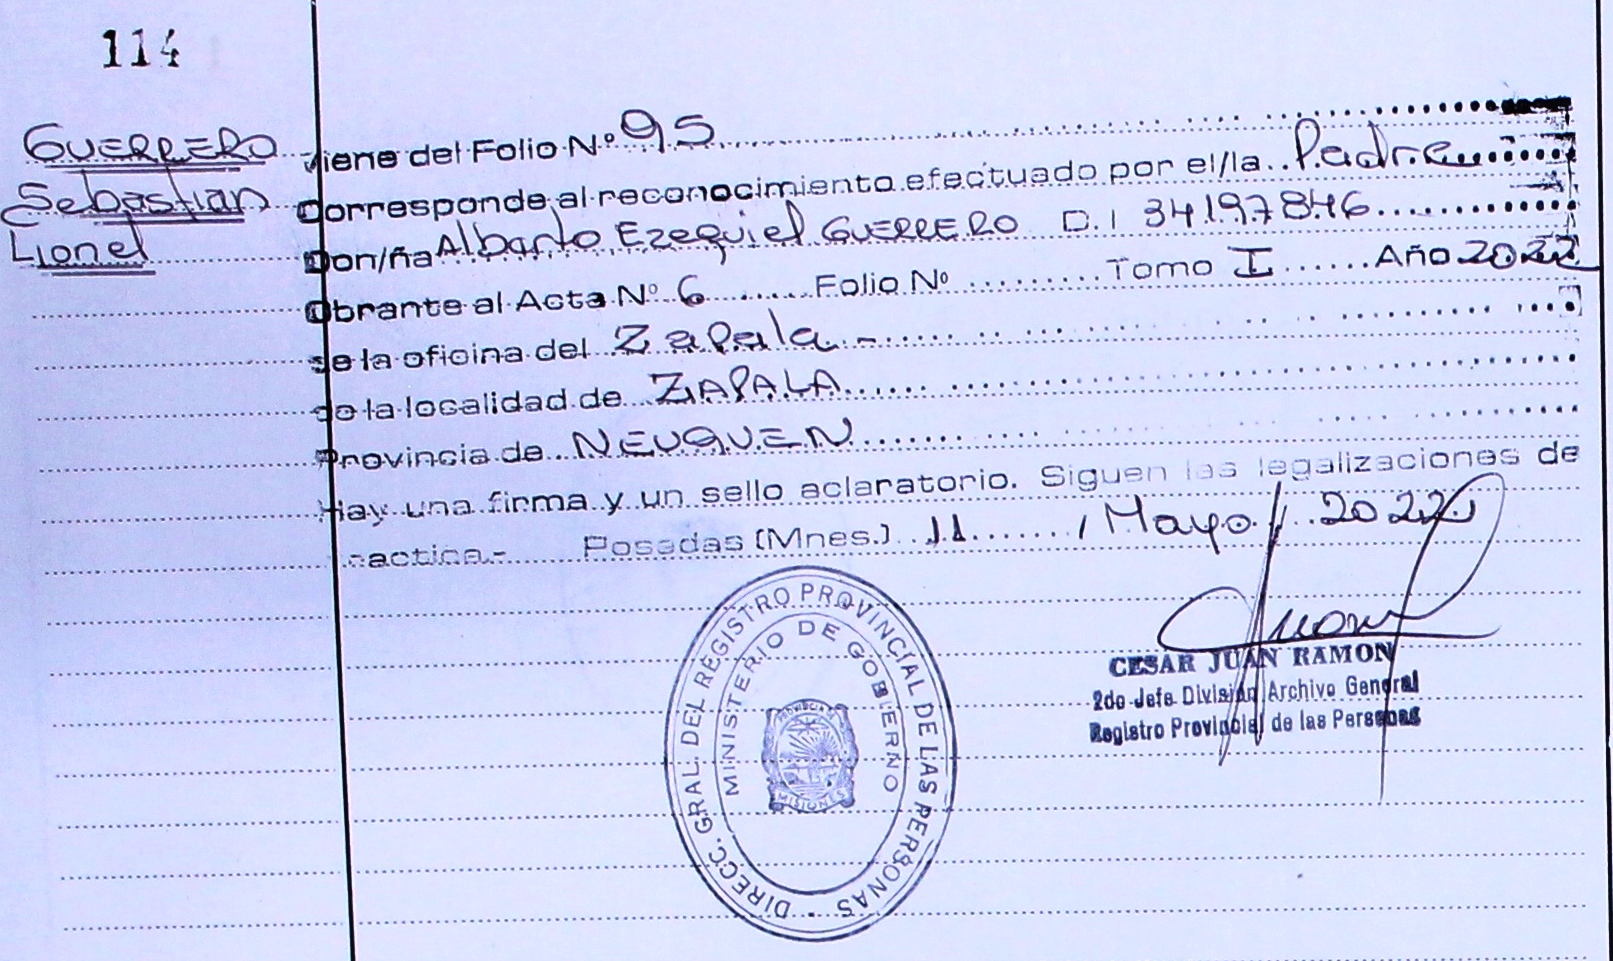 114
GUERRERO
Sebastian
Lionel
Viene del Folio Nº 95
Corresponde al reconocimiento efectuado por el/la Padre
Don/ña Alberto Ezequiel GUERRERO D.I 34197846
Obrante al Acta Nº 6 Folio Nº Tomo I Año 2022
de la oficina del Zapala -
de la localidad de ZAPALA
Provincia de NEUQUEN
Hay una firma y un sello aclaratorio. Siguen las legalizaciones de
practica.- Posadas (Mnes.) 11 / Mayo / 2022
CESAR JUAN RAMON
2do Jefe División Archivo General
Registro Provincial de las Personas
DIRECC. GRAL. DEL REGISTRO PROVINCIAL DE LAS PERSONAS
MINISTERIO DE GOBIERNO
PROVINCIA DE
MISIONES